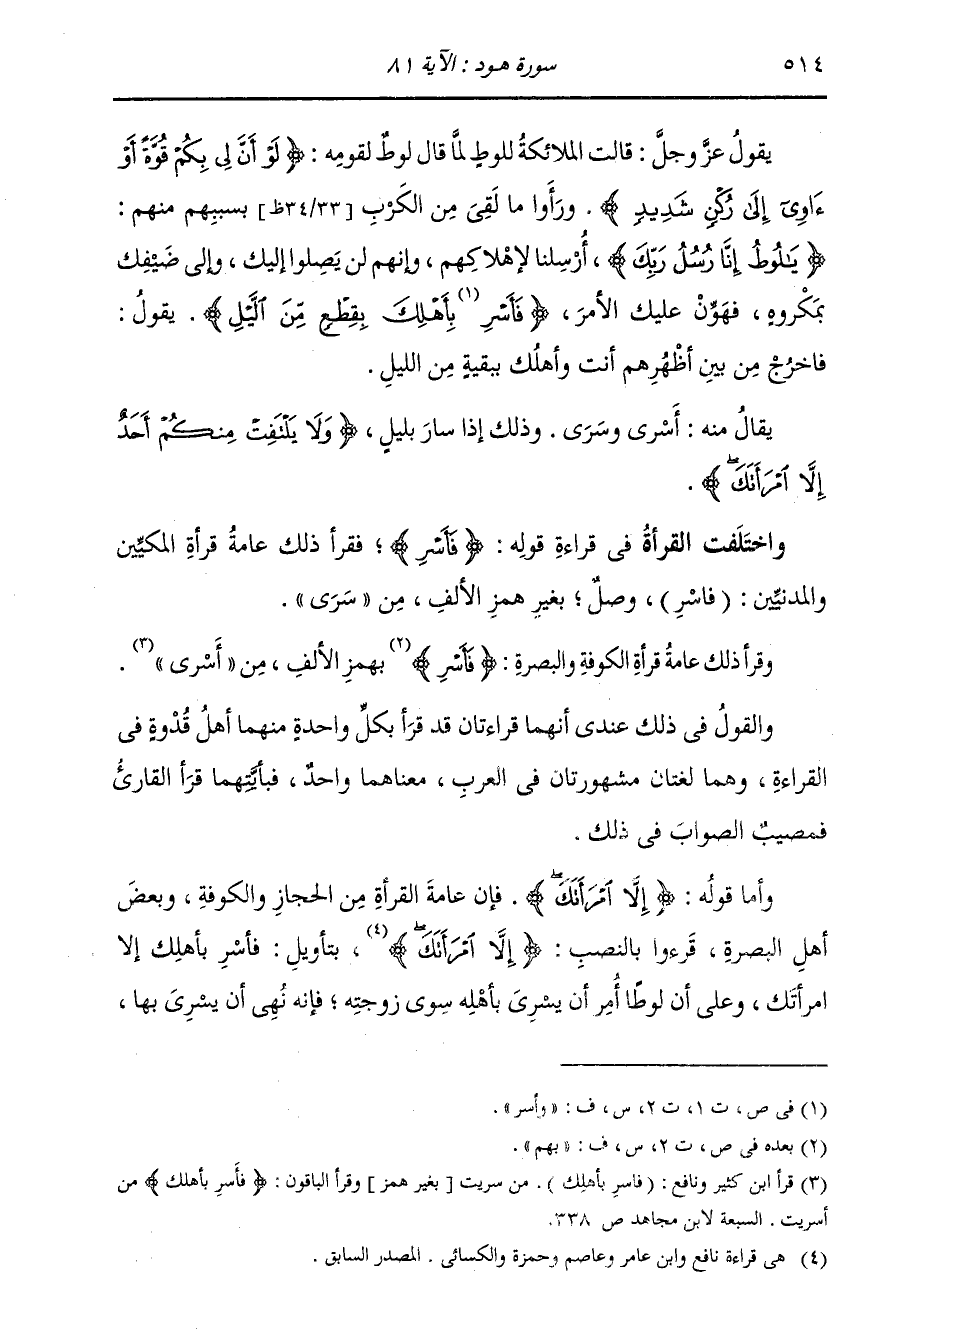 ٥١٤ سورة هود : الآية ٨١
يقولُ عزَّ وجلَّ : قالت الملائكةُ للوطٍ لمَّا قال لوطٌ لقومِه : ﴿ لَوْ أَنَّ لِى بِكُمْ قُوَّةً أَوْ
ءَاوِىٓ إِلَىٰ رُكْنٍ شَدِيدٍ ﴾ . ورأَوا ما لَقِىَ مِن الكَرْبِ [٣٤/٣٣ظ] بسببِهم منهم :
﴿ يَٰلُوطُ إِنَّا رُسُلُ رَبِّكَ ﴾ ، أُرْسِلنا لإهْلاكِهم ، وإنهم لن يَصِلوا إليك ، وإلى ضَيْفِك
بمَكْروهٍ ، فهَوِّنْ عليك الأمرَ ، ﴿ فَأَسْرِ (١) بِأَهْلِكَ بِقِطْعٍ مِّنَ ٱلَّيْلِ ﴾ . يقولُ :
فاخرُجْ مِن بينِ أظْهُرِهم أنت وأهلُك ببقيةٍ مِن الليلِ .
يقالُ منه : أَسْرى وسَرَى . وذلك إذا سارَ بليلٍ ، ﴿ وَلَا يَلْتَفِتْ مِنكُمْ أَحَدٌ
إِلَّا ٱمْرَأَتَكَ ۖ ﴾ .
واختَلَفت القرأةُ فى قراءةِ قولِه : ﴿ فَأَسْرِ ﴾ ؛ فقرأ ذلك عامةُ قرأةِ المكيِّين
والمدنيِّين : ( فاسْرِ ) ، وصلٌ ؛ بغيرِ همزِ الألفِ ، مِن « سَرَى » .
وقرأ ذلك عامةُ قرأةِ الكوفةِ والبصرةِ : ﴿ فَأَسْرِ ﴾ (٢) بهمزِ الألفِ ، مِن « أَسْرى » (٣) .
والقولُ فى ذلك عندى أنهما قراءتان قد قرَأ بكلِّ واحدةٍ منهما أهلُ قُدْوةٍ فى
القراءةِ ، وهما لغتان مشهورتان فى العربِ ، معناهما واحدٌ ، فبأيَّتِهما قرَأ القارئُ
فمصيبٌ الصوابَ فى ذلك .
وأما قولُه : ﴿ إِلَّا ٱمْرَأَتَكَ ۖ ﴾ . فإن عامةَ القرأةِ مِن الحجازِ والكوفةِ ، وبعضَ
أهلِ البصرةِ ، قَرءوا بالنصبِ : ﴿ إِلَّا ٱمْرَأَتَكَ ۖ ﴾ (٤) ، بتأويلِ : فأَسْرِ بأهلِك إلا
امرأتَك ، وعلى أن لوطًا أُمِر أن يسْرِىَ بأهْلِه سوى زوجتِه ؛ فإنه نُهِى أن يسْرِىَ بها ،
(١) فى ص ، ت ١ ، ت ٢ ، س ، ف : « وأسر » .
(٢) بعده فى ص ، ت ٢ ، س ، ف : « بهم » .
(٣) قرأ ابن كثير ونافع : ( فاسر بأهلِك ) . من سريت [ بغير همز ] وقرأ الباقون : ﴿ فأَسرِ بأهلك ﴾ من
أسريت . السبعة لابن مجاهد ص ٣٣٨ .
(٤) هى قراءة نافع وابن عامر وعاصم وحمزة والكسائى . المصدر السابق .